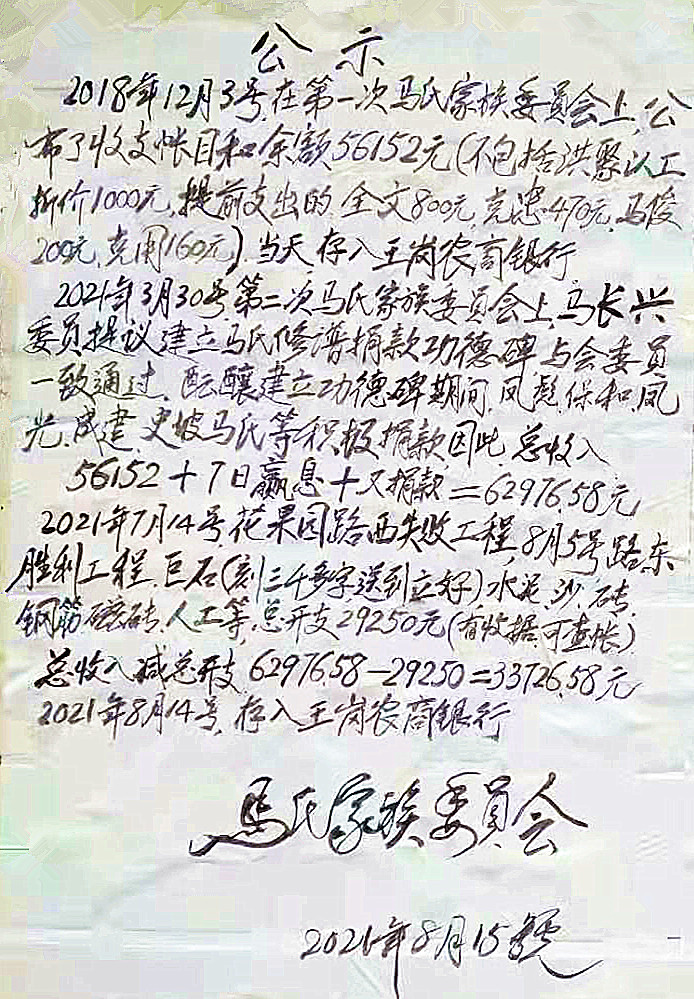 公示
2018年12月3号,在第一次马氏家族委员会上,公
布了收支帐目和余额56152元(不包括洪聚以工
折价1000元,提前支出的全文800元,克忠470元,马俊
200元,克用160元)当天存入王岗农商银行
2021年3月30号,第二次马氏家族委员会上,马长兴
委员提议建立马氏修谱捐款功德碑,与会委员
一致通过.酝酿建立功德碑期间,凤彪.保和.凤
光.成建.史坡马氏等积极捐款,因此,总收入
56152+7日赢息+又捐款=62976.58元
2021年7月14号,花果园路西失败工程,8月5号路东
胜利工程.巨石(刻三千多字送到立好)水泥.沙.砖.
钢筋.磁砖.人工等,总开支29250元(有收据.可查帐)
总收入减总开支.62976.58-29250=33726.58元
2021年8月14号,存入王岗农商银行
马氏家族委员会
2021年8月15号